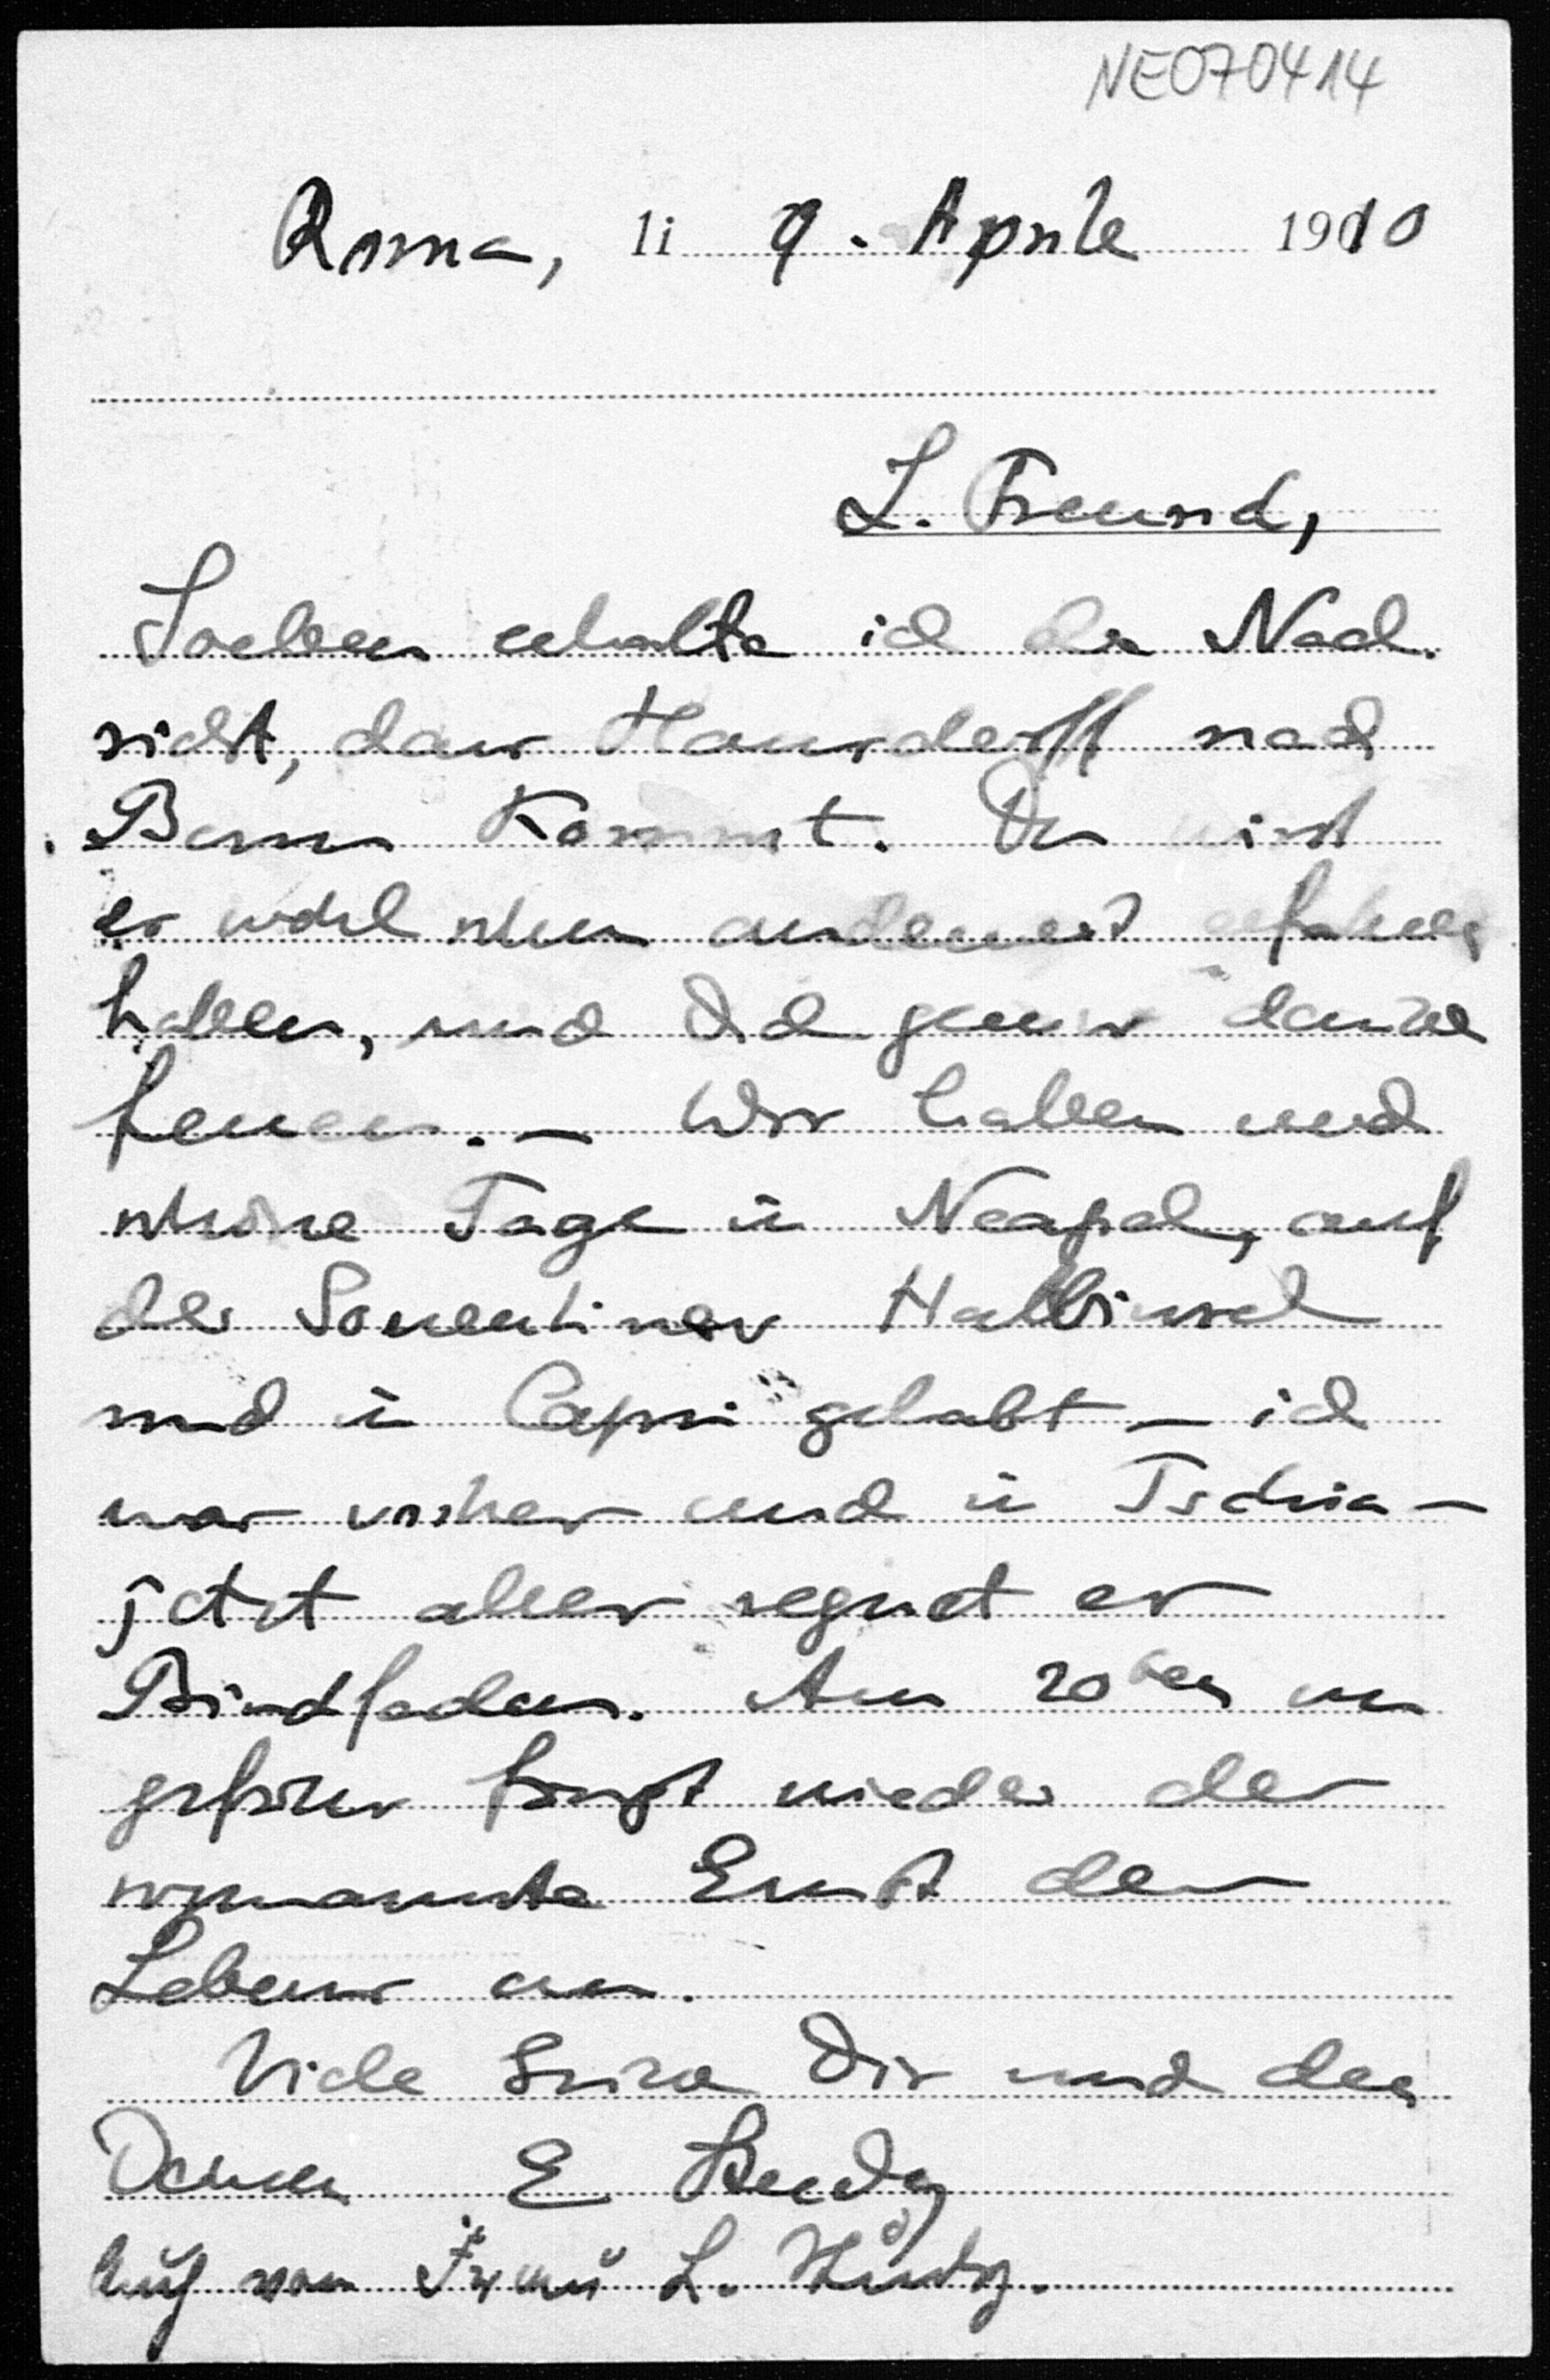 NE070414
Roma, li 9. Aprile 1910
L. Freund,
Soeben erhalte ich die Nach-
richt, dass Hausdorff nach
Bonn kommt. Du wirst
es wohl schon anderweit erfahren
haben, und Dich gewiss darüber
freuen. – Wir haben
schöne Tage in Neapel, auf
der Sorrentiner Halbinsel
und in Capri gehabt – ich
war vorher auch in Ischia –
jetzt aber regnet es
Bindfaden. Am 20ten un
gefähr fängt wieder der
sogenannte Ernst des
Lebens an.
Viele Grüsse Dir und den
Deinen E Study
Auch von Frau L. Study.